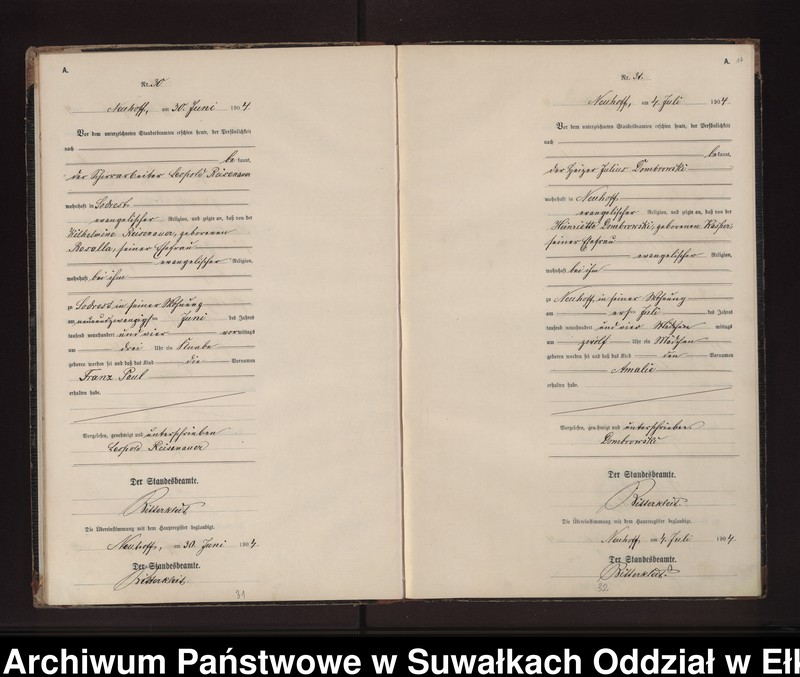 A.
Nr. 30
Neuhoff, am 30. Juni 1904.
Vor dem unterzeichneten Standesbeamten erschien heute, der Persönlichkeit
nach
bekannt,
der Scharrarbeiter Leopold Reisenauer
wohnhaft in Sodrest
evangelischer Religion, und zeigte an, daß von der
Wilhelmine Reisenauer, geborenen
Rosalla, seiner Ehefrau
evangelischer Religion,
wohnhaft bei ihm
zu Sodrest in seiner Wohnung
am neunundzwanzigsten Juni des Jahres
tausend neunhundert und vier vormittags
um drei Uhr ein Knabe
geboren worden sei und daß das Kind die Vornamen
Franz Paul
erhalten habe.
Vorgelesen, genehmigt und unterschrieben
Leopold Reisenauer
Der Standesbeamte.
Bitterkleit.
Die Übereinstimmung mit dem Hauptregister beglaubigt.
Neuhoff, am 30. Juni 1904.
Der Standesbeamte.
Bitterkleit.
31
A.
Nr. 31
Neuhoff, am 4. Juli 1904.
Vor dem unterzeichneten Standesbeamten erschien heute, der Persönlichkeit
nach
bekannt,
der Heizer Julius Dombrowski
wohnhaft in Neuhoff
evangelischer Religion, und zeigte an, daß von der
Henriette Dombrowski, geborenen
seiner Ehefrau
evangelischer Religion,
wohnhaft bei ihm
zu Neuhoff in seiner Wohnung
am ersten Juli des Jahres
tausend neunhundert und vier mittags
um zwölf Uhr ein Mädchen
geboren worden sei und daß das Kind den Vornamen
Amalie
erhalten habe.
Vorgelesen, genehmigt und unterschrieben
Dombrowski
Der Standesbeamte.
Bitterkleit.
Die Übereinstimmung mit dem Hauptregister beglaubigt.
Neuhoff, am 4. Juli 1904.
Der Standesbeamte.
Bitterkleit.
32
Archiwum Państwowe w Suwałkach Oddział w Eł